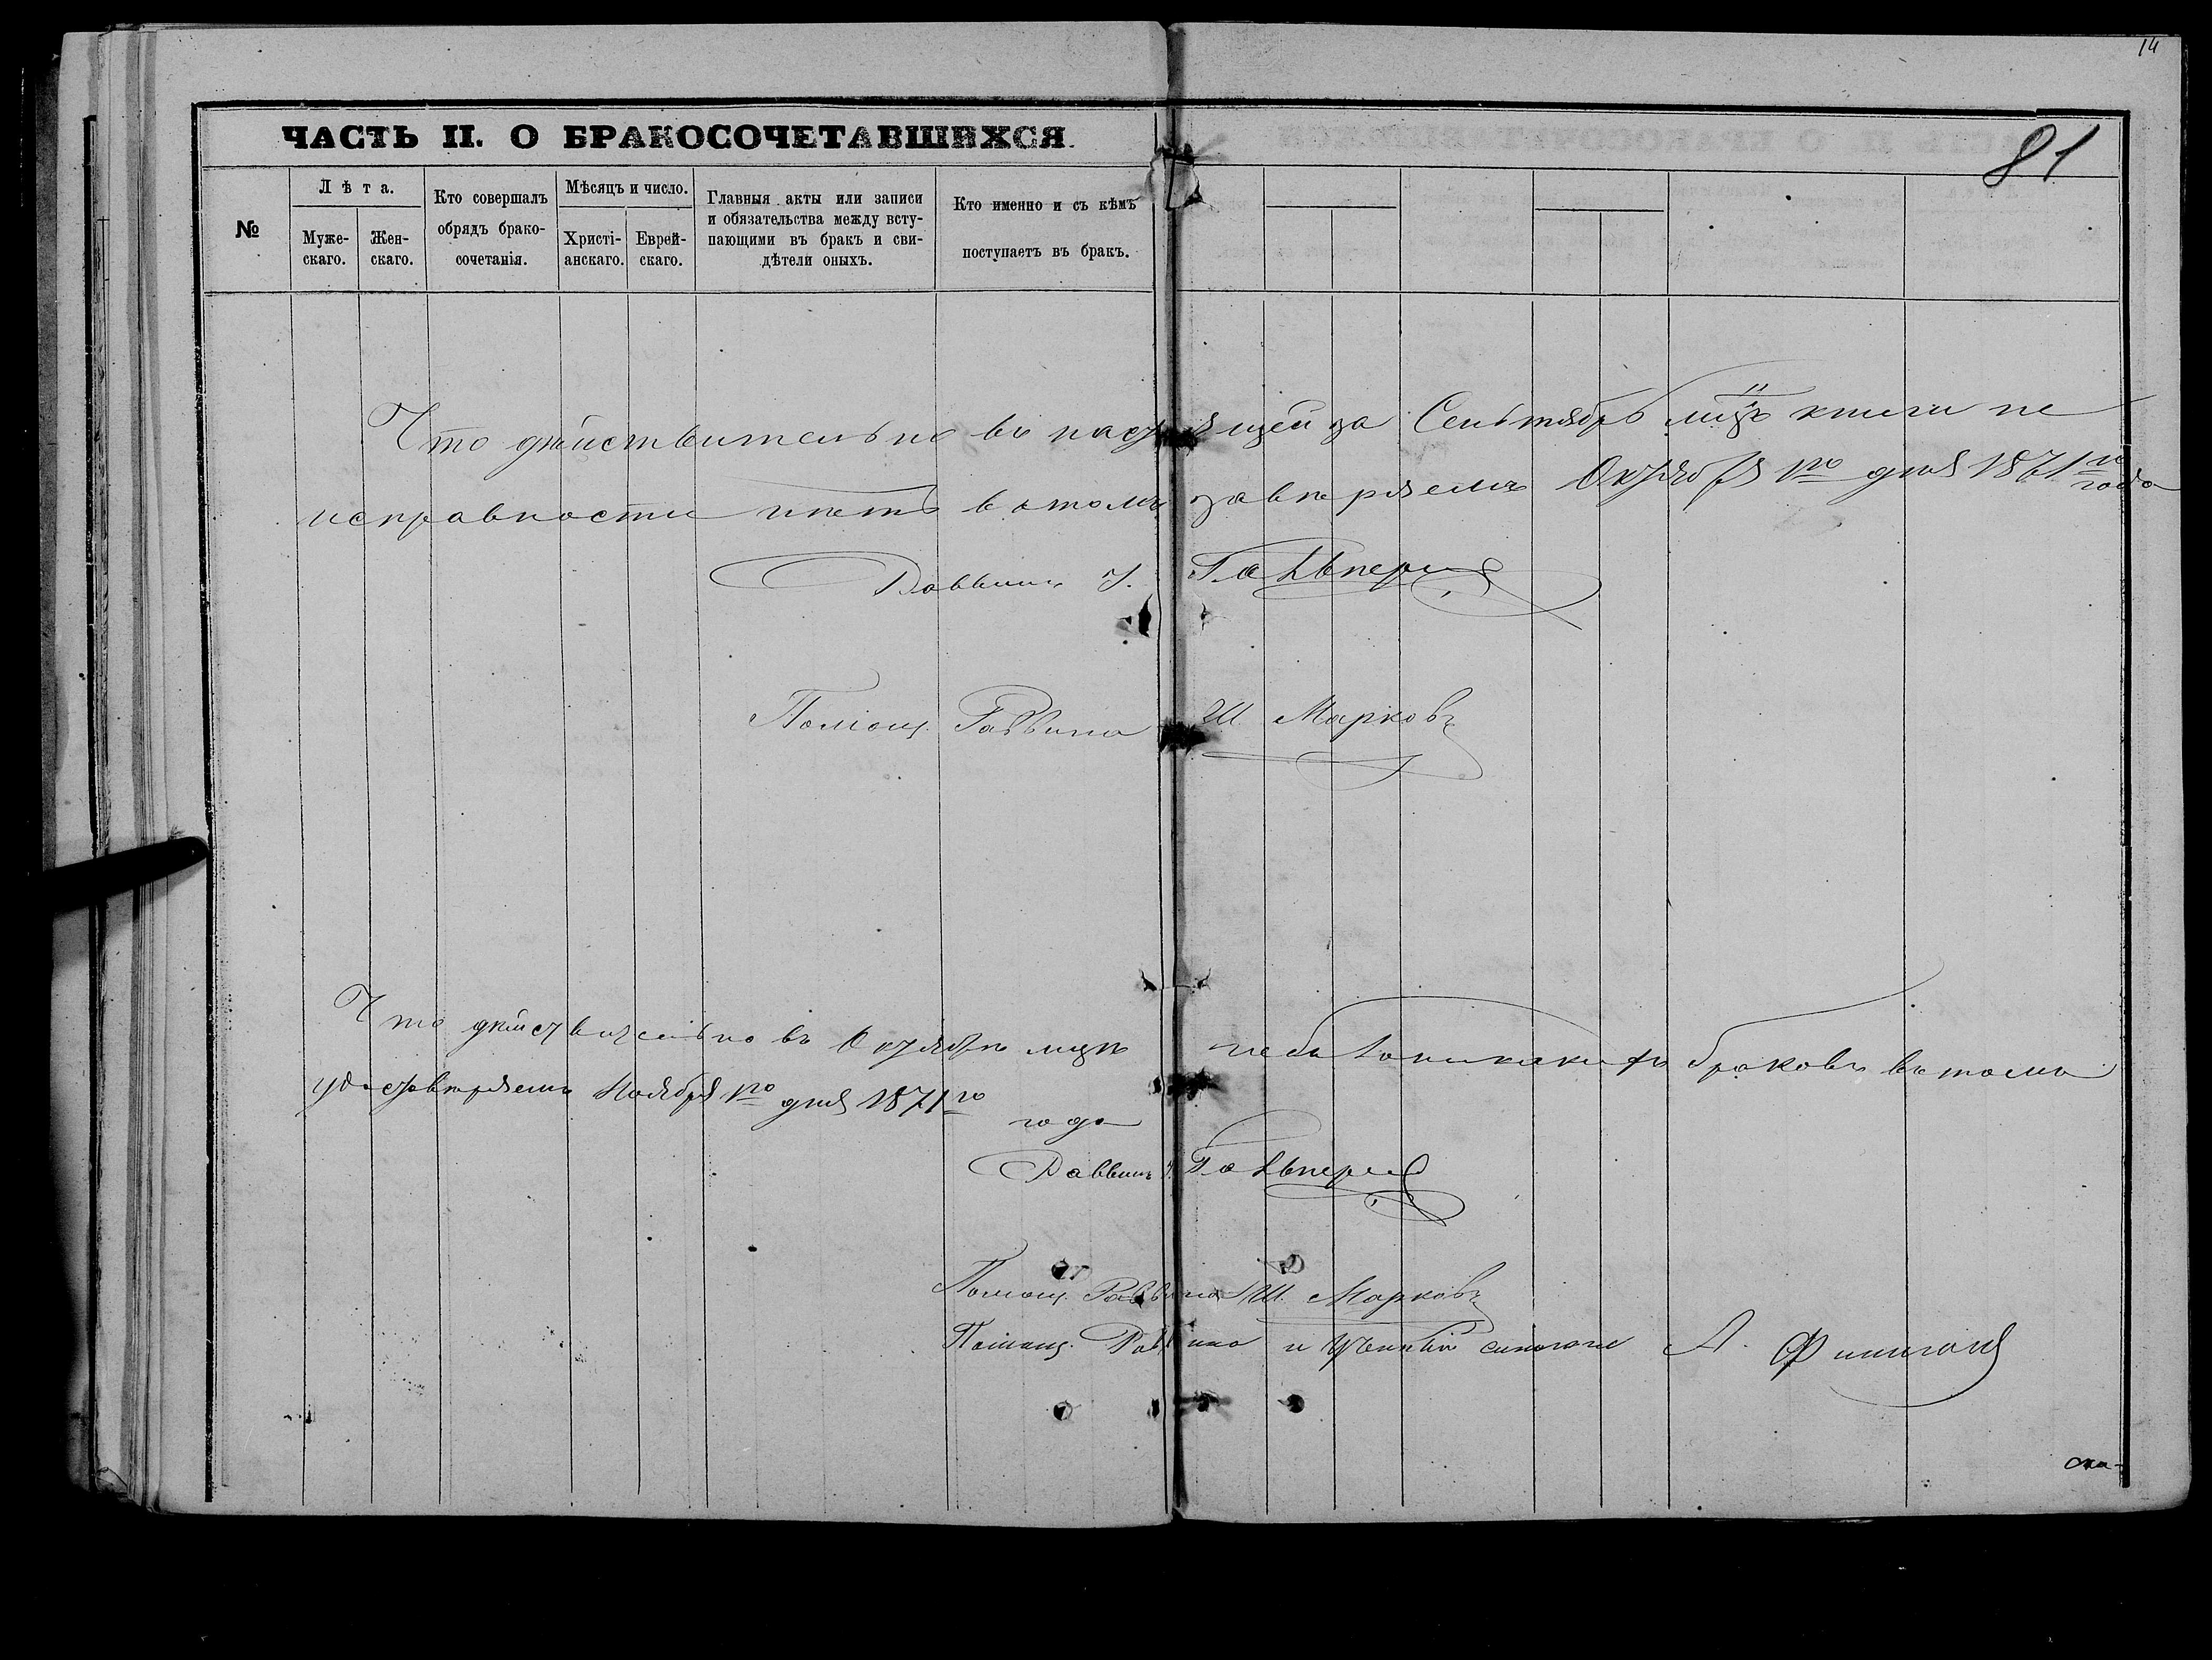 14
81
ЧАСТЬ II. О БРАКОСОЧЕТАВШИХСЯ.
№
Лѣта.
Муже-
скаго.
Жен-
скаго.
Кто совершалъ
обрядъ брако-
сочетанія.
Мѣсяцъ и число.
Христі-
анскаго.
Еврей-
скаго.
Главныя акты или записи
и обязательства между всту-
пающими въ бракъ и сви-
дѣтели оныхъ.
Кто именно и съ кѣмъ
поступаетъ въ бракъ.
Что дѣйствительно въ настоящей за Сентябрь мцъ книги не
исправности нѣтъ в томъ завѣряемъ Октября 1го дня 1871го года
Раввинъ Гальперин
Помощ. Раввина Ш Марковъ
Что дѣйствительно въ Октябрѣ мцѣ небыло никакихъ браковъ въ томъ
удостовѣряемъ Ноября 1го дня 1871го
года
Раввинъ Гальперин
Помощ. Раввина Ш. Марковъ
Помощ. Раввина и Ученый синагоги А.